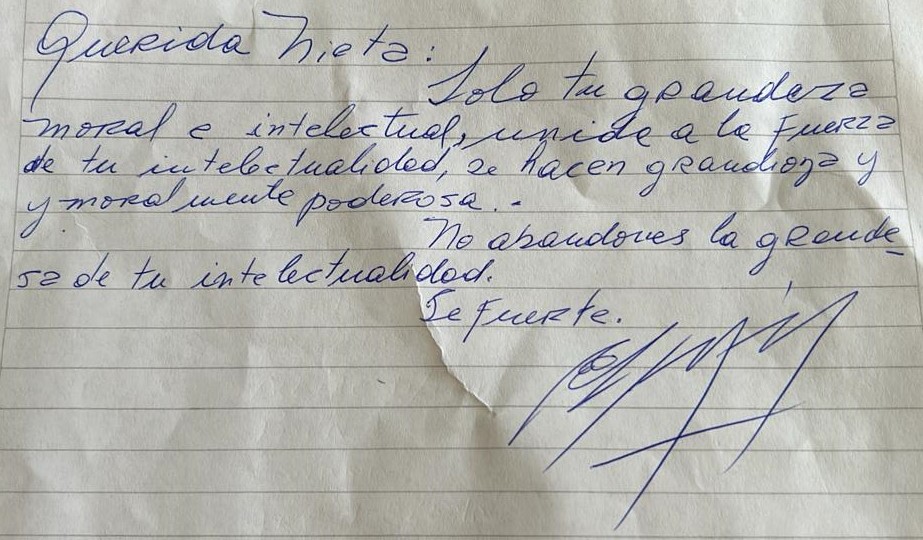 Querida Nieta:
Solo tu grandeza
moral e intelectual, unida a la Fuerza
de tu intelectualidad, se hacen grandioza y
y moralmente poderosa.-
No abandones la grande-
sa de tu intelectualidad.
Se Fuerte.